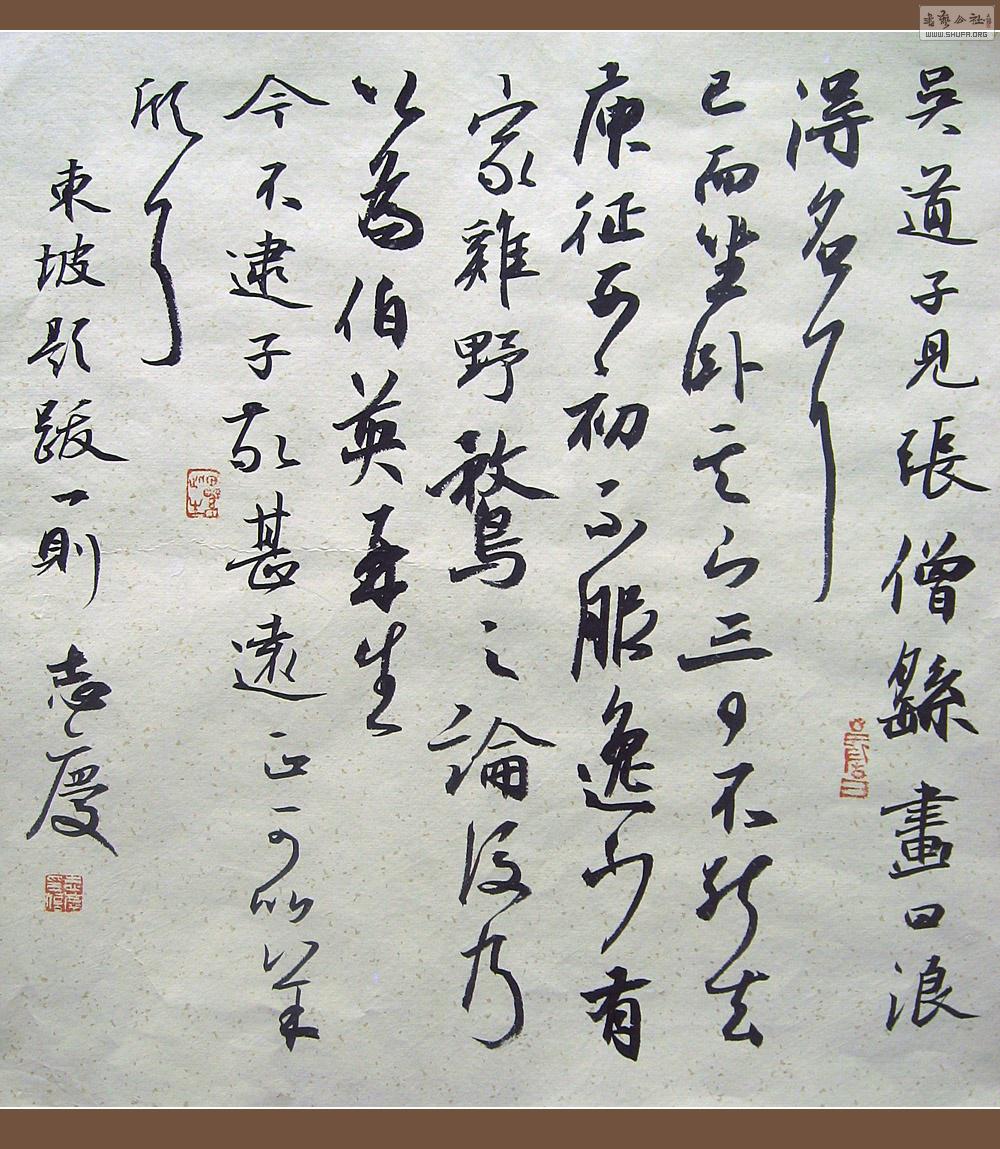 吳道子見張僧繇畫曰浪
得名耳
已而坐卧其下三日不能去
庾征西初不服逸少有
家雞野鶩之論後乃
以為伯英再生
今不逮子敬甚遠正可比羊
欣耳
東坡題跋一則 志慶
書藝公社
WWW.SHUFA.ORG